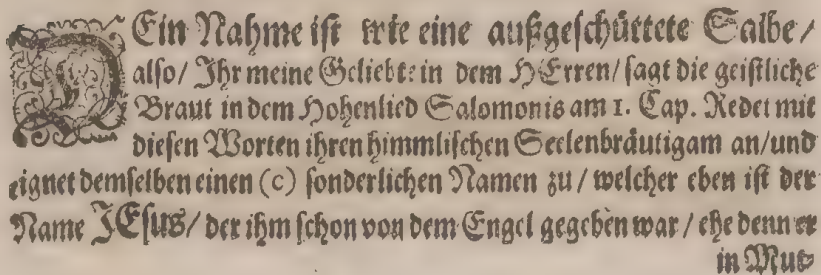 DEin Nahme ist wie eine außgeschüttete Salbe/
also/ Ihr meine Geliebte in dem HErren/ sagt die geistliche
Braut in dem Hohenlied Salomonis am 1. Cap. Redet mit
diesen Worten ihren himmlischen Seelenbräutigam an/ und
eignet demselben einen (c) sonderlichen Namen zu/ welcher eben ist der
Name JEsus/ der ihm schon von dem Engel gegeben war/ ehe denn er
in Mut-